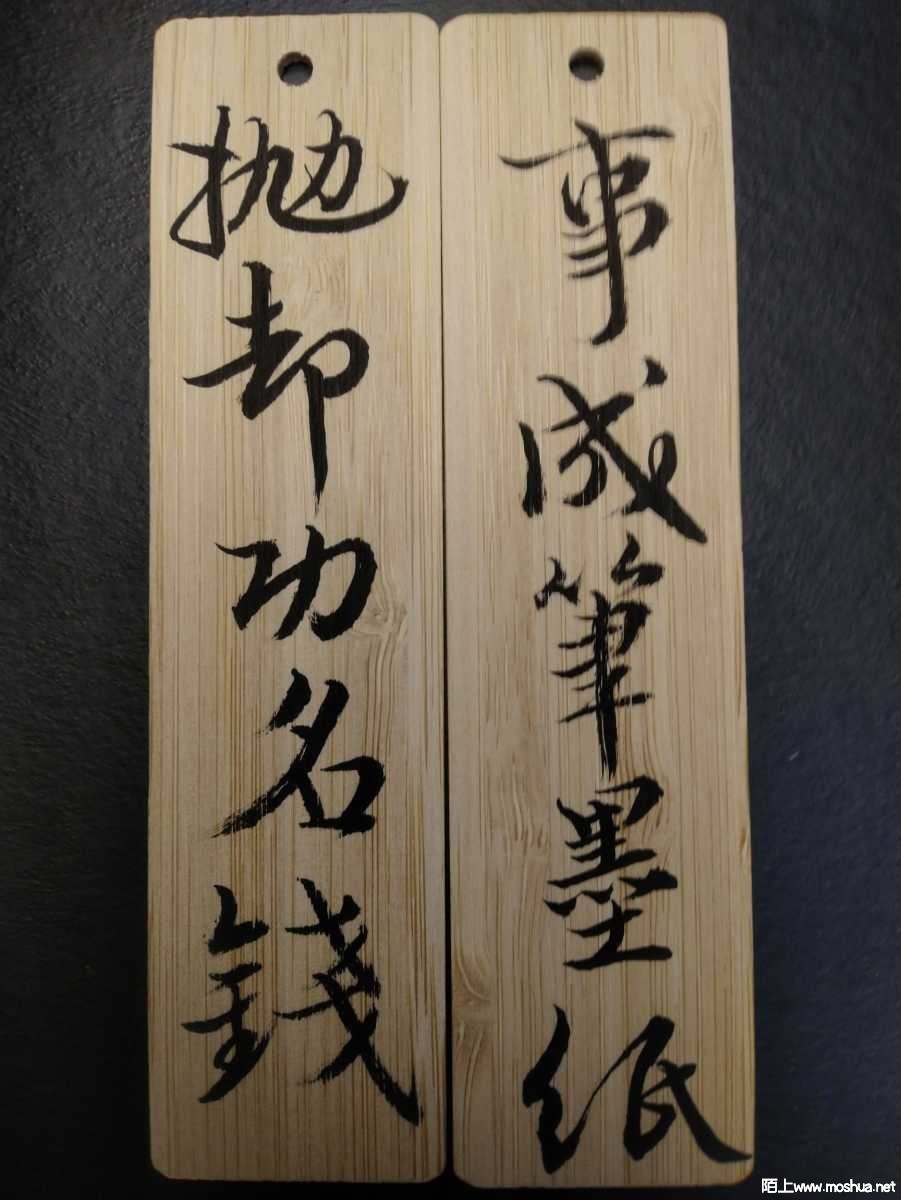 事成筆墨纸
抛却功名錢
陌上www.moshua.net